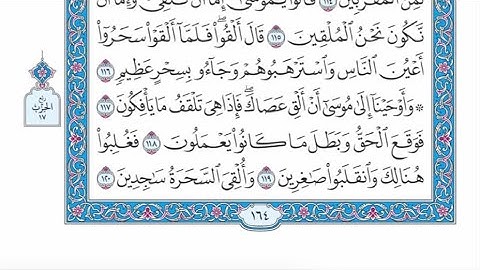 لَمِنَ ٱلْمُقَرَّبِينَ ١١٤ قَالُوا۟ يَٰمُوسَىٰٓ إِمَّآ أَن تُلْقِىَ وَإِمَّآ أَن
نَّكُونَ نَحْنُ ٱلْمُلْقِينَ ١١٥ قَالَ أَلْقُوا۟ۖ فَلَمَّآ أَلْقَوْا۟ سَحَرُوٓا۟
أَعْيُنَ ٱلنَّاسِ وَٱسْتَرْهَبُوهُمْ وَجَآءُو بِسِحْرٍ عَظِيمٍ ١١٦
۞ وَأَوْحَيْنَآ إِلَىٰ مُوسَىٰٓ أَنْ أَلْقِ عَصَاكَۖ فَإِذَا هِىَ تَلْقَفُ مَا يَأْفِكُونَ ١١٧
فَوَقَعَ ٱلْحَقُّ وَبَطَلَ مَا كَانُوا۟ يَعْمَلُونَ ١١٨ فَغُلِبُوا۟
هُنَالِكَ وَٱنقَلَبُوا۟ صَٰغِرِينَ ١١٩ وَأُلْقِىَ ٱلسَّحَرَةُ سَٰجِدِينَ ١٢٠
ربع
الحزب
١٧
١٦٤